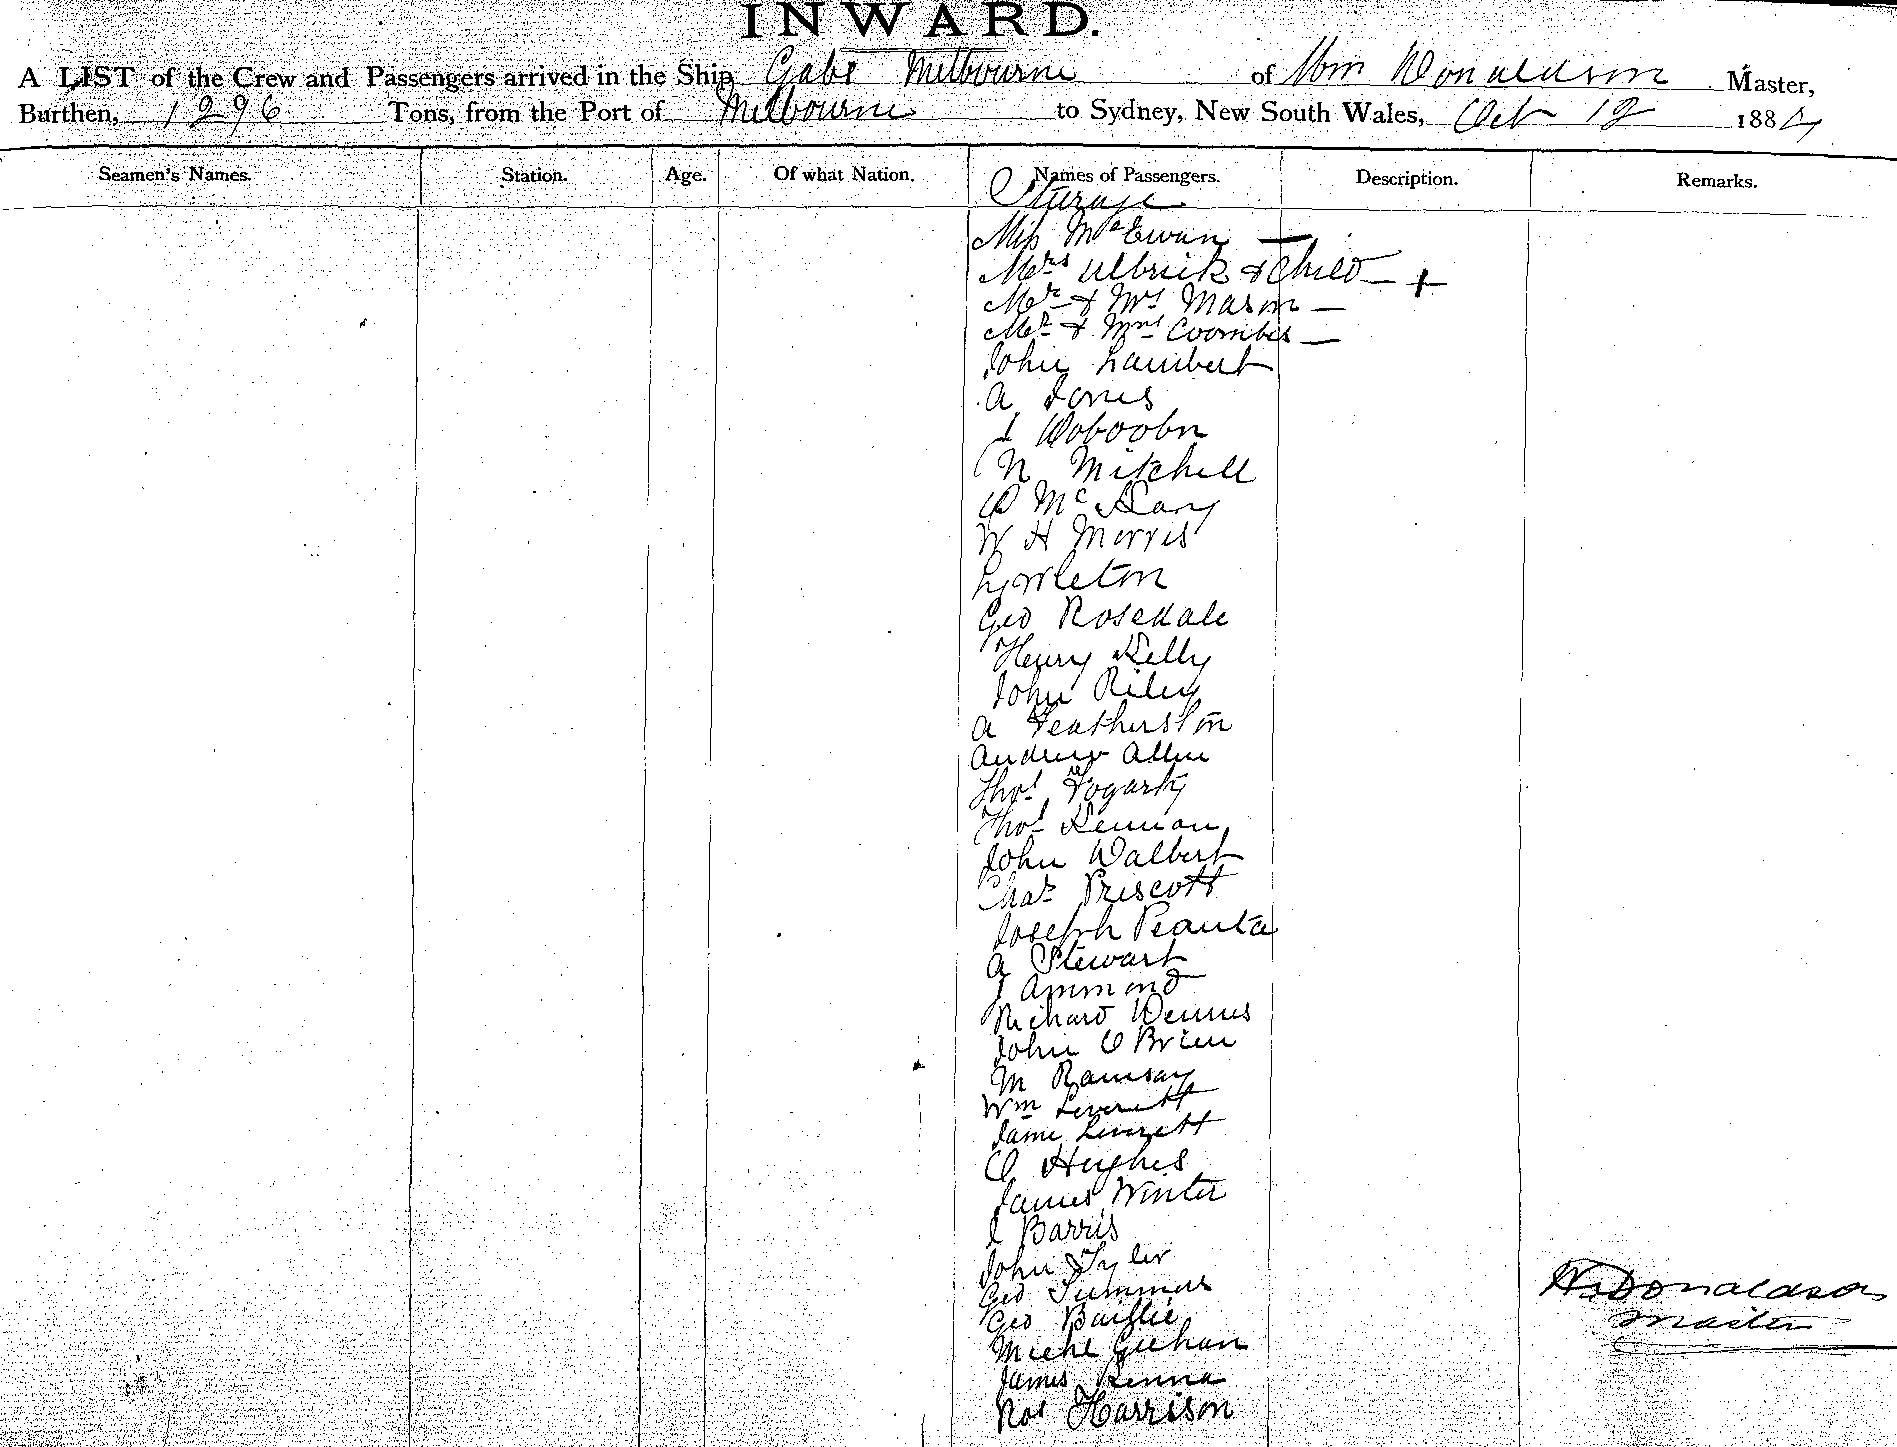 INWARD.
A LIST of the Crew and Passengers arrived in the Ship Gabo Melbourne of Wm Donaldson Master,
Burthen, 1296 Tons, from the Port of Melbourne to Sydney, New South Wales, Oct 12 188
Seamen's Names. Station. Age. Of what Nation. Names of Passengers. Description. Remarks.
Sturage
Miss McEwan —
Mrs Ulbrick & Child — +
Mr & Mrs Mason —
Mr & Mrs Coombes —
John Lambert
A Jones
J
N Mitchell
D Mc
W H Morris
Geo Rosedale
Henry Kelly
John Riley
A Featherston
Andrew Allen
Thos Fogarty
Thos
John Walbert
Chas Priscott
Joseph
A Stewart
J Ammond
Richard Dennis
John O Brien
M Ramsay
Wm Leverett
Jame Leverett
C Hughes
James Winter
Barris
John Tyler
Geo Summers
Geo
Michl Geehan
James Kenna
Harrison
W Donaldson
Master